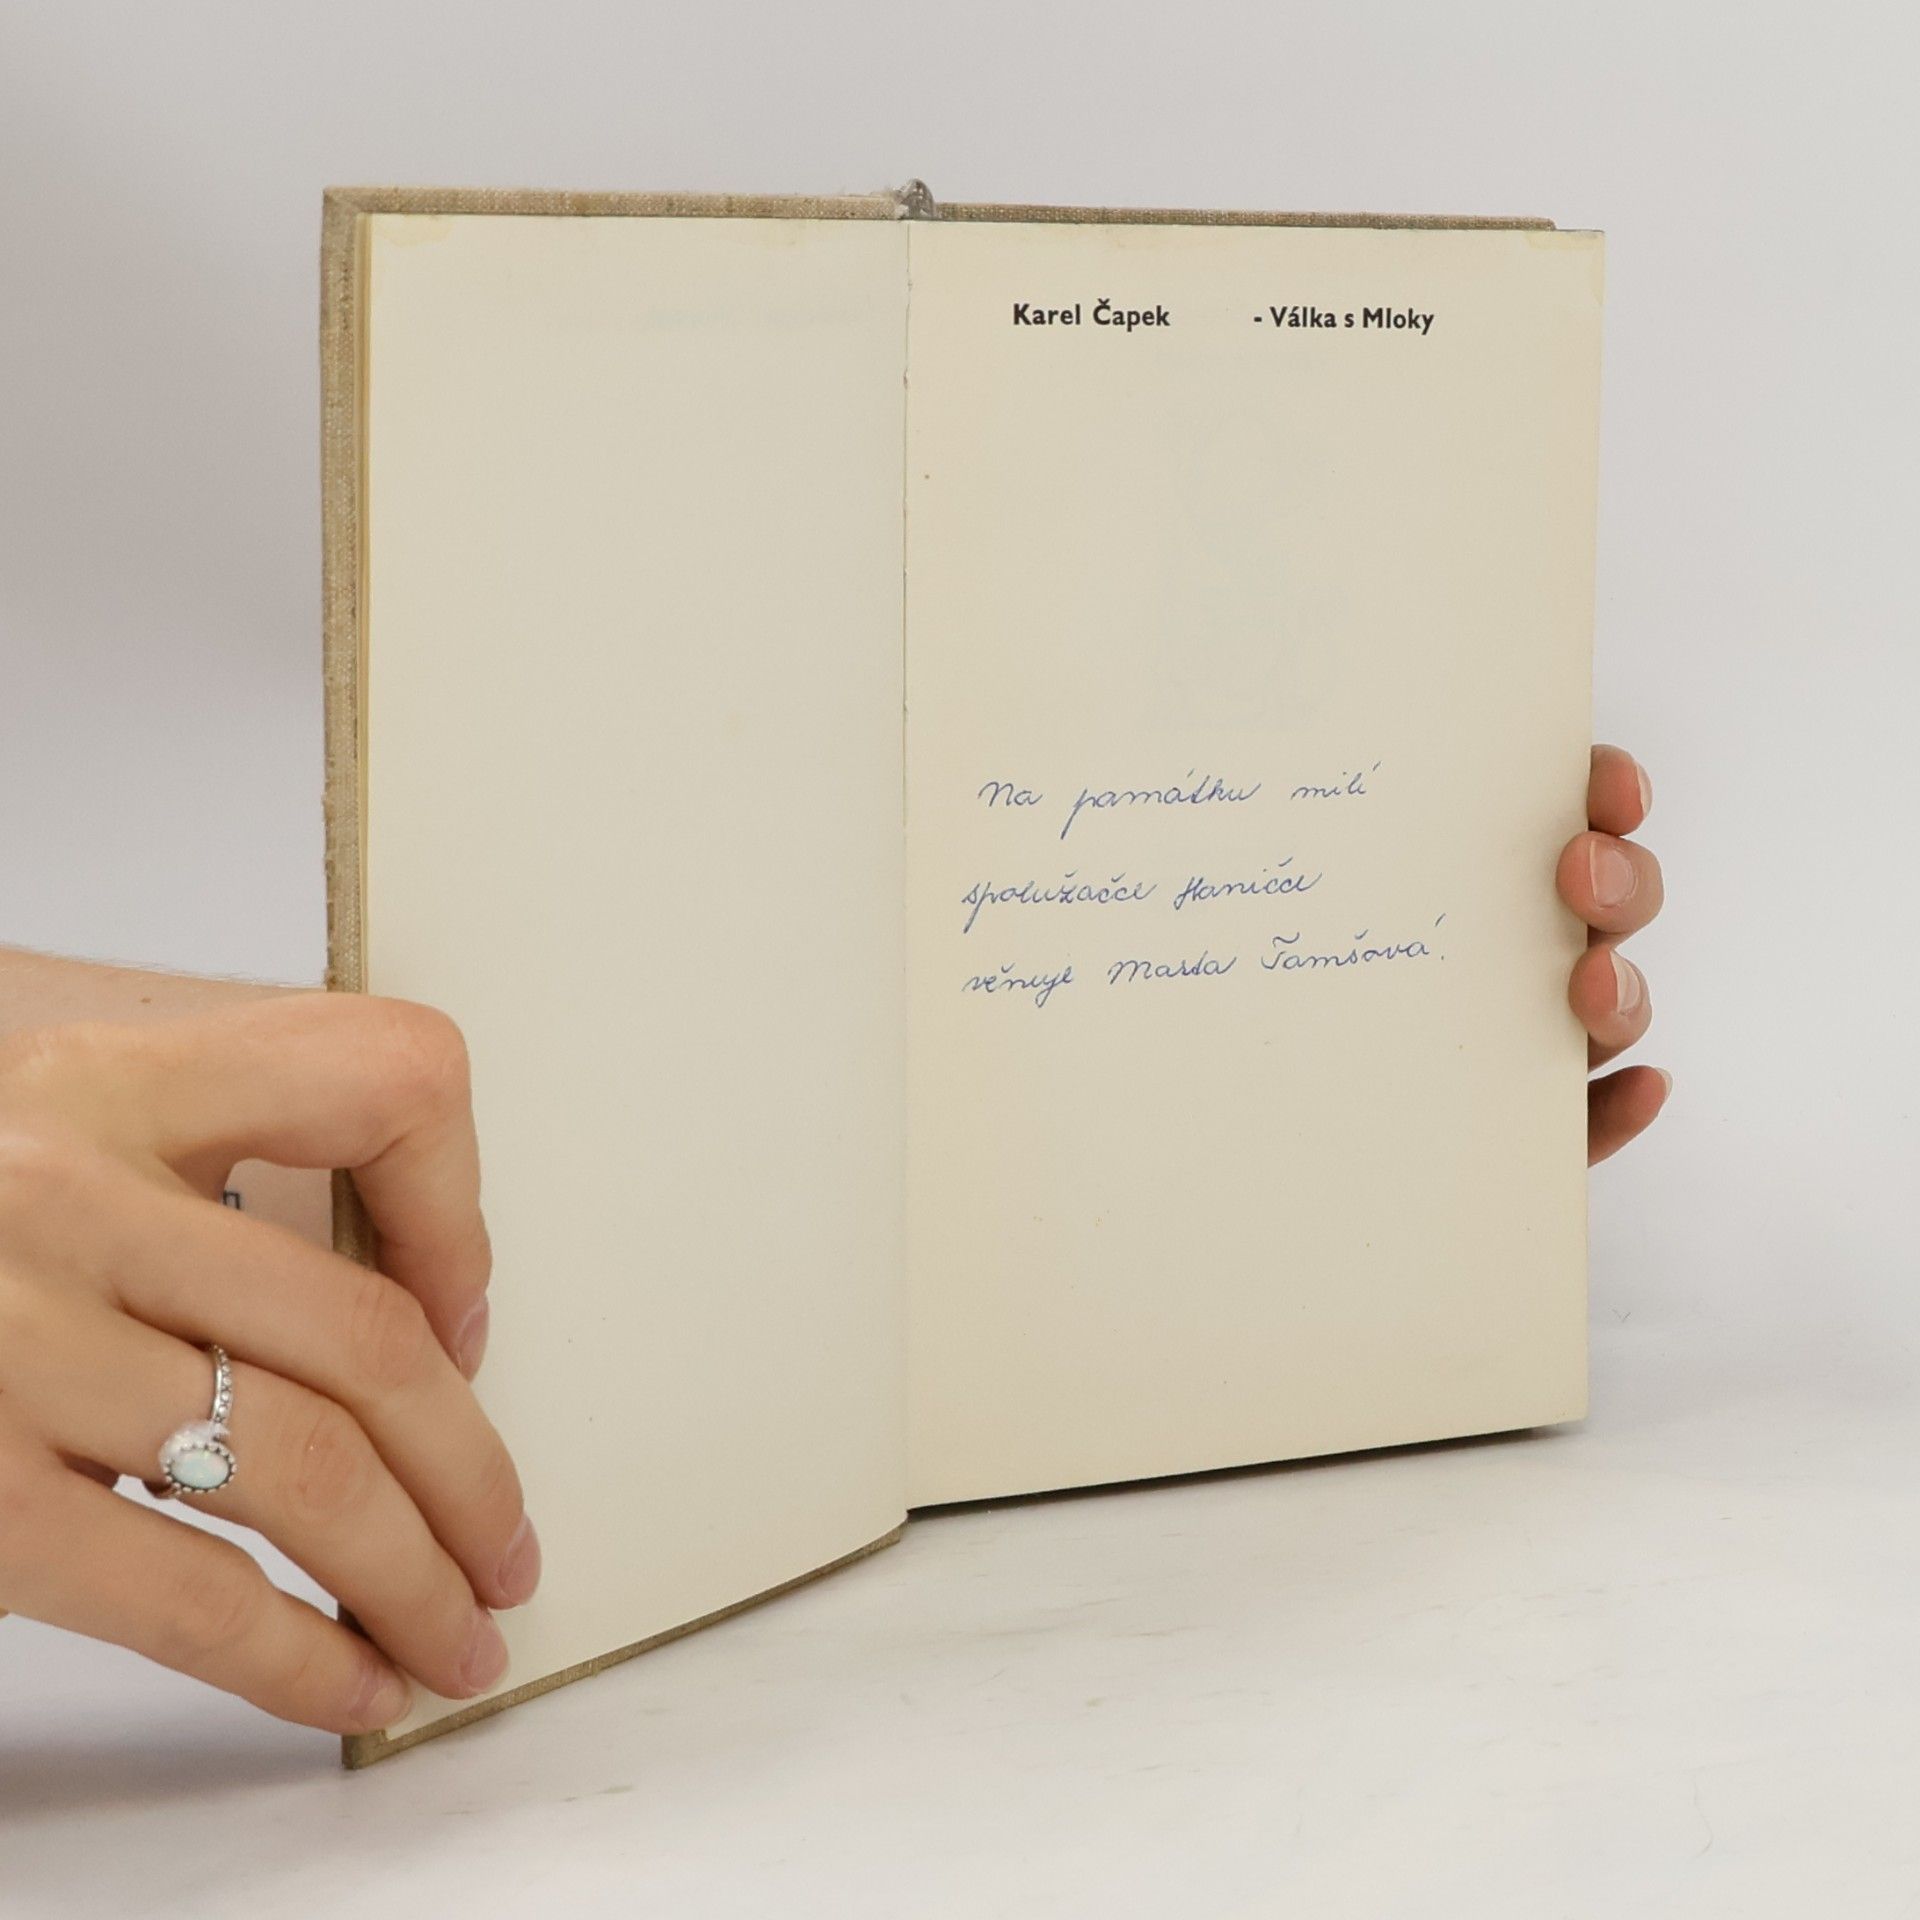 Karel Čapek - Válka s Mloky
Na památku milé
spolužačce Haničce
věnuje Marta Tamšová.